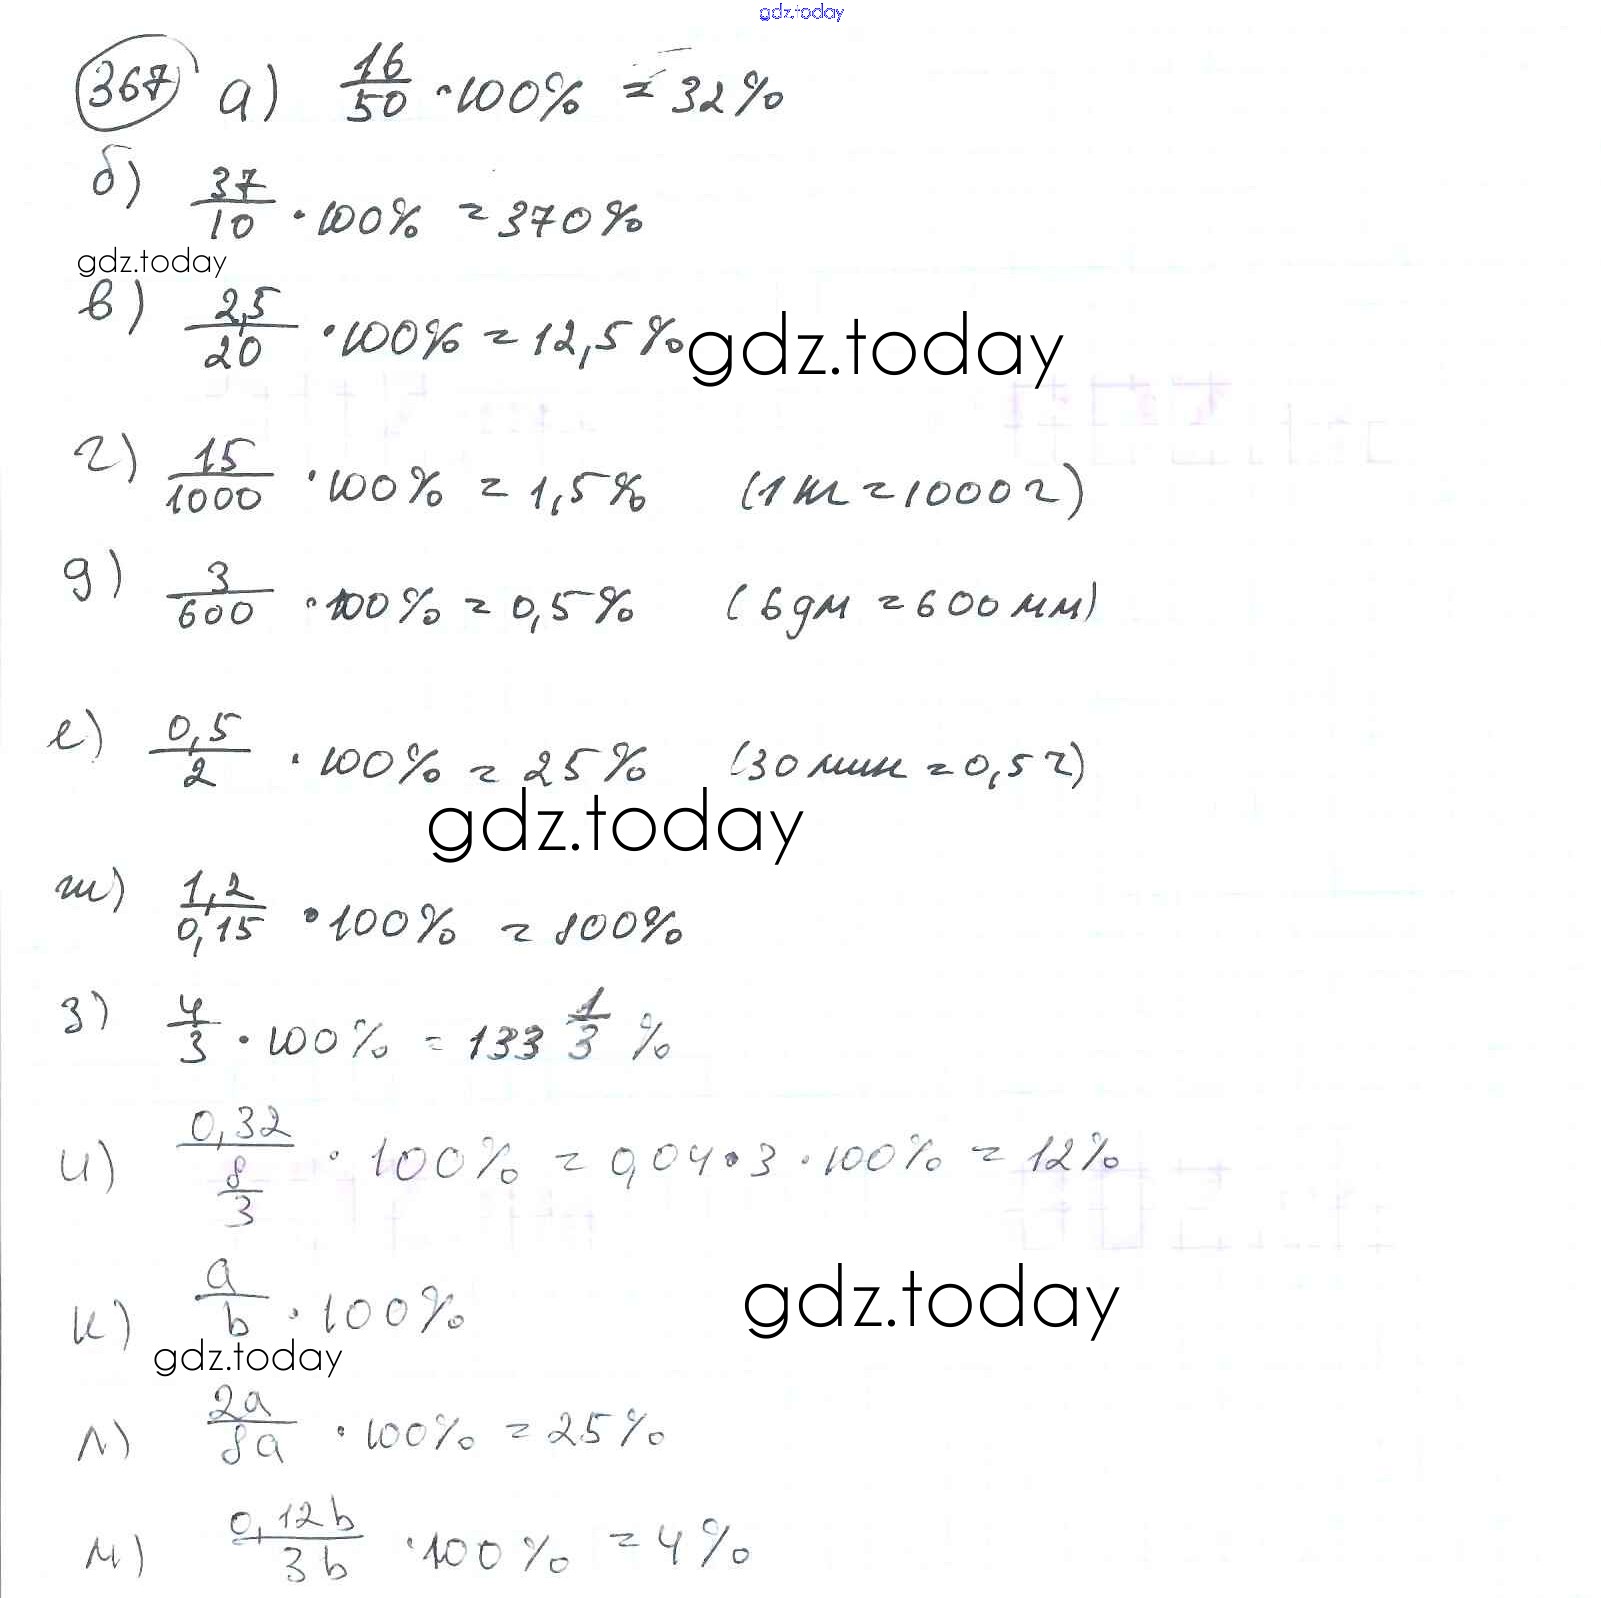 gdz.today
367 а) 16/50 · 100% = 32%
б) 37/10 · 100% = 370%
gdz.today
в) 2,5/20 · 100% = 12,5%
gdz.today
г) 15/1000 · 100% = 1,5% (1 кг = 1000 г)
д) 3/600 · 100% = 0,5% (6 дм = 600 мм)
е) 0,5/2 · 100% = 25% (30 мин = 0,5 ч)
gdz.today
ж) 1,2/0,15 · 100% = 800%
з) 4/3 · 100% = 133 1/3 %
и) 0,32/(8/3) · 100% = 0,04 · 3 · 100% = 12%
gdz.today
к) a/b · 100%
gdz.today
л) 2a/8a · 100% = 25%
м) 0,12b/3b · 100% = 4%